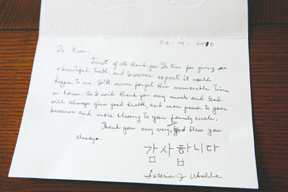 06-14-2010
Dr Kim,
First of all thank you Dr Kim for giving us
beautiful teeth and I never expect it would
happen to me. I will never forget this memorable time
in Korea. So I said thank you very much and God
will always give good health, and more power to your
business and more blessing to your family circle.
Thank you very very, God bless you
always.
감사합니다